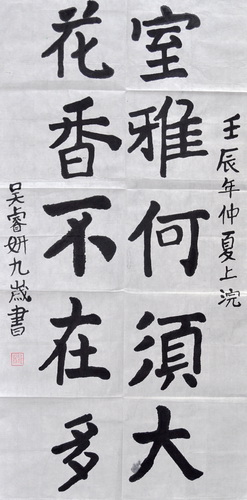 壬辰年仲夏上浣
室雅何須大
花香不在多
吳睿妍九歲書